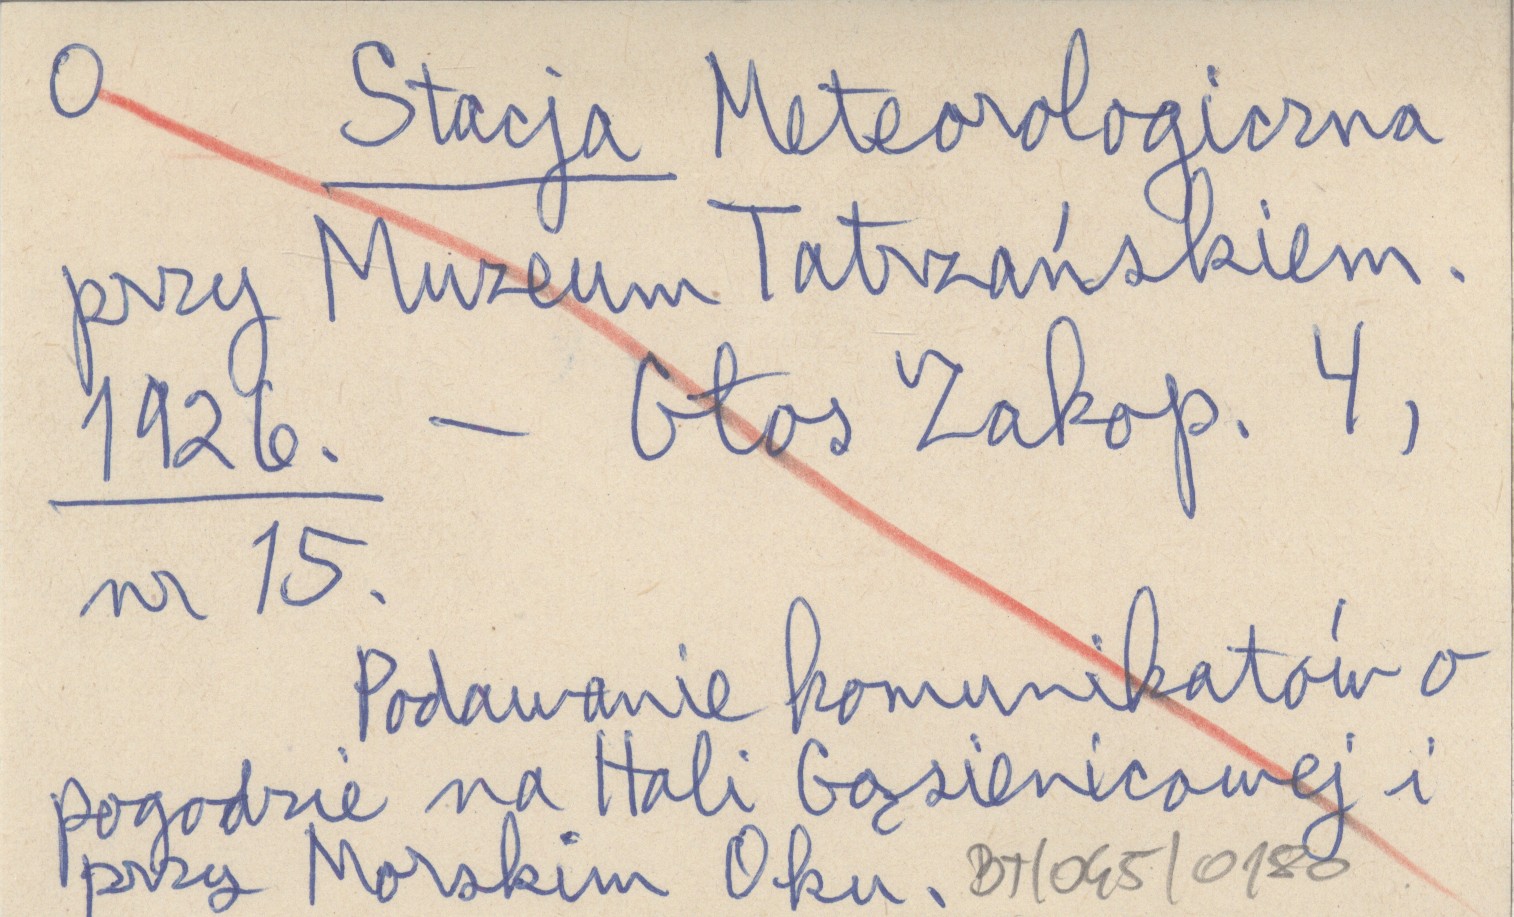 O Stacja Meteorologiczna
przy Muzeum Tatrzańskiem.
1926. — Głos Zakop. 4,
nr 15.
Podawanie komunikatów o
pogodzie na Hali Gąsienicowej i
przy Morskim Oku. BT/045/0180